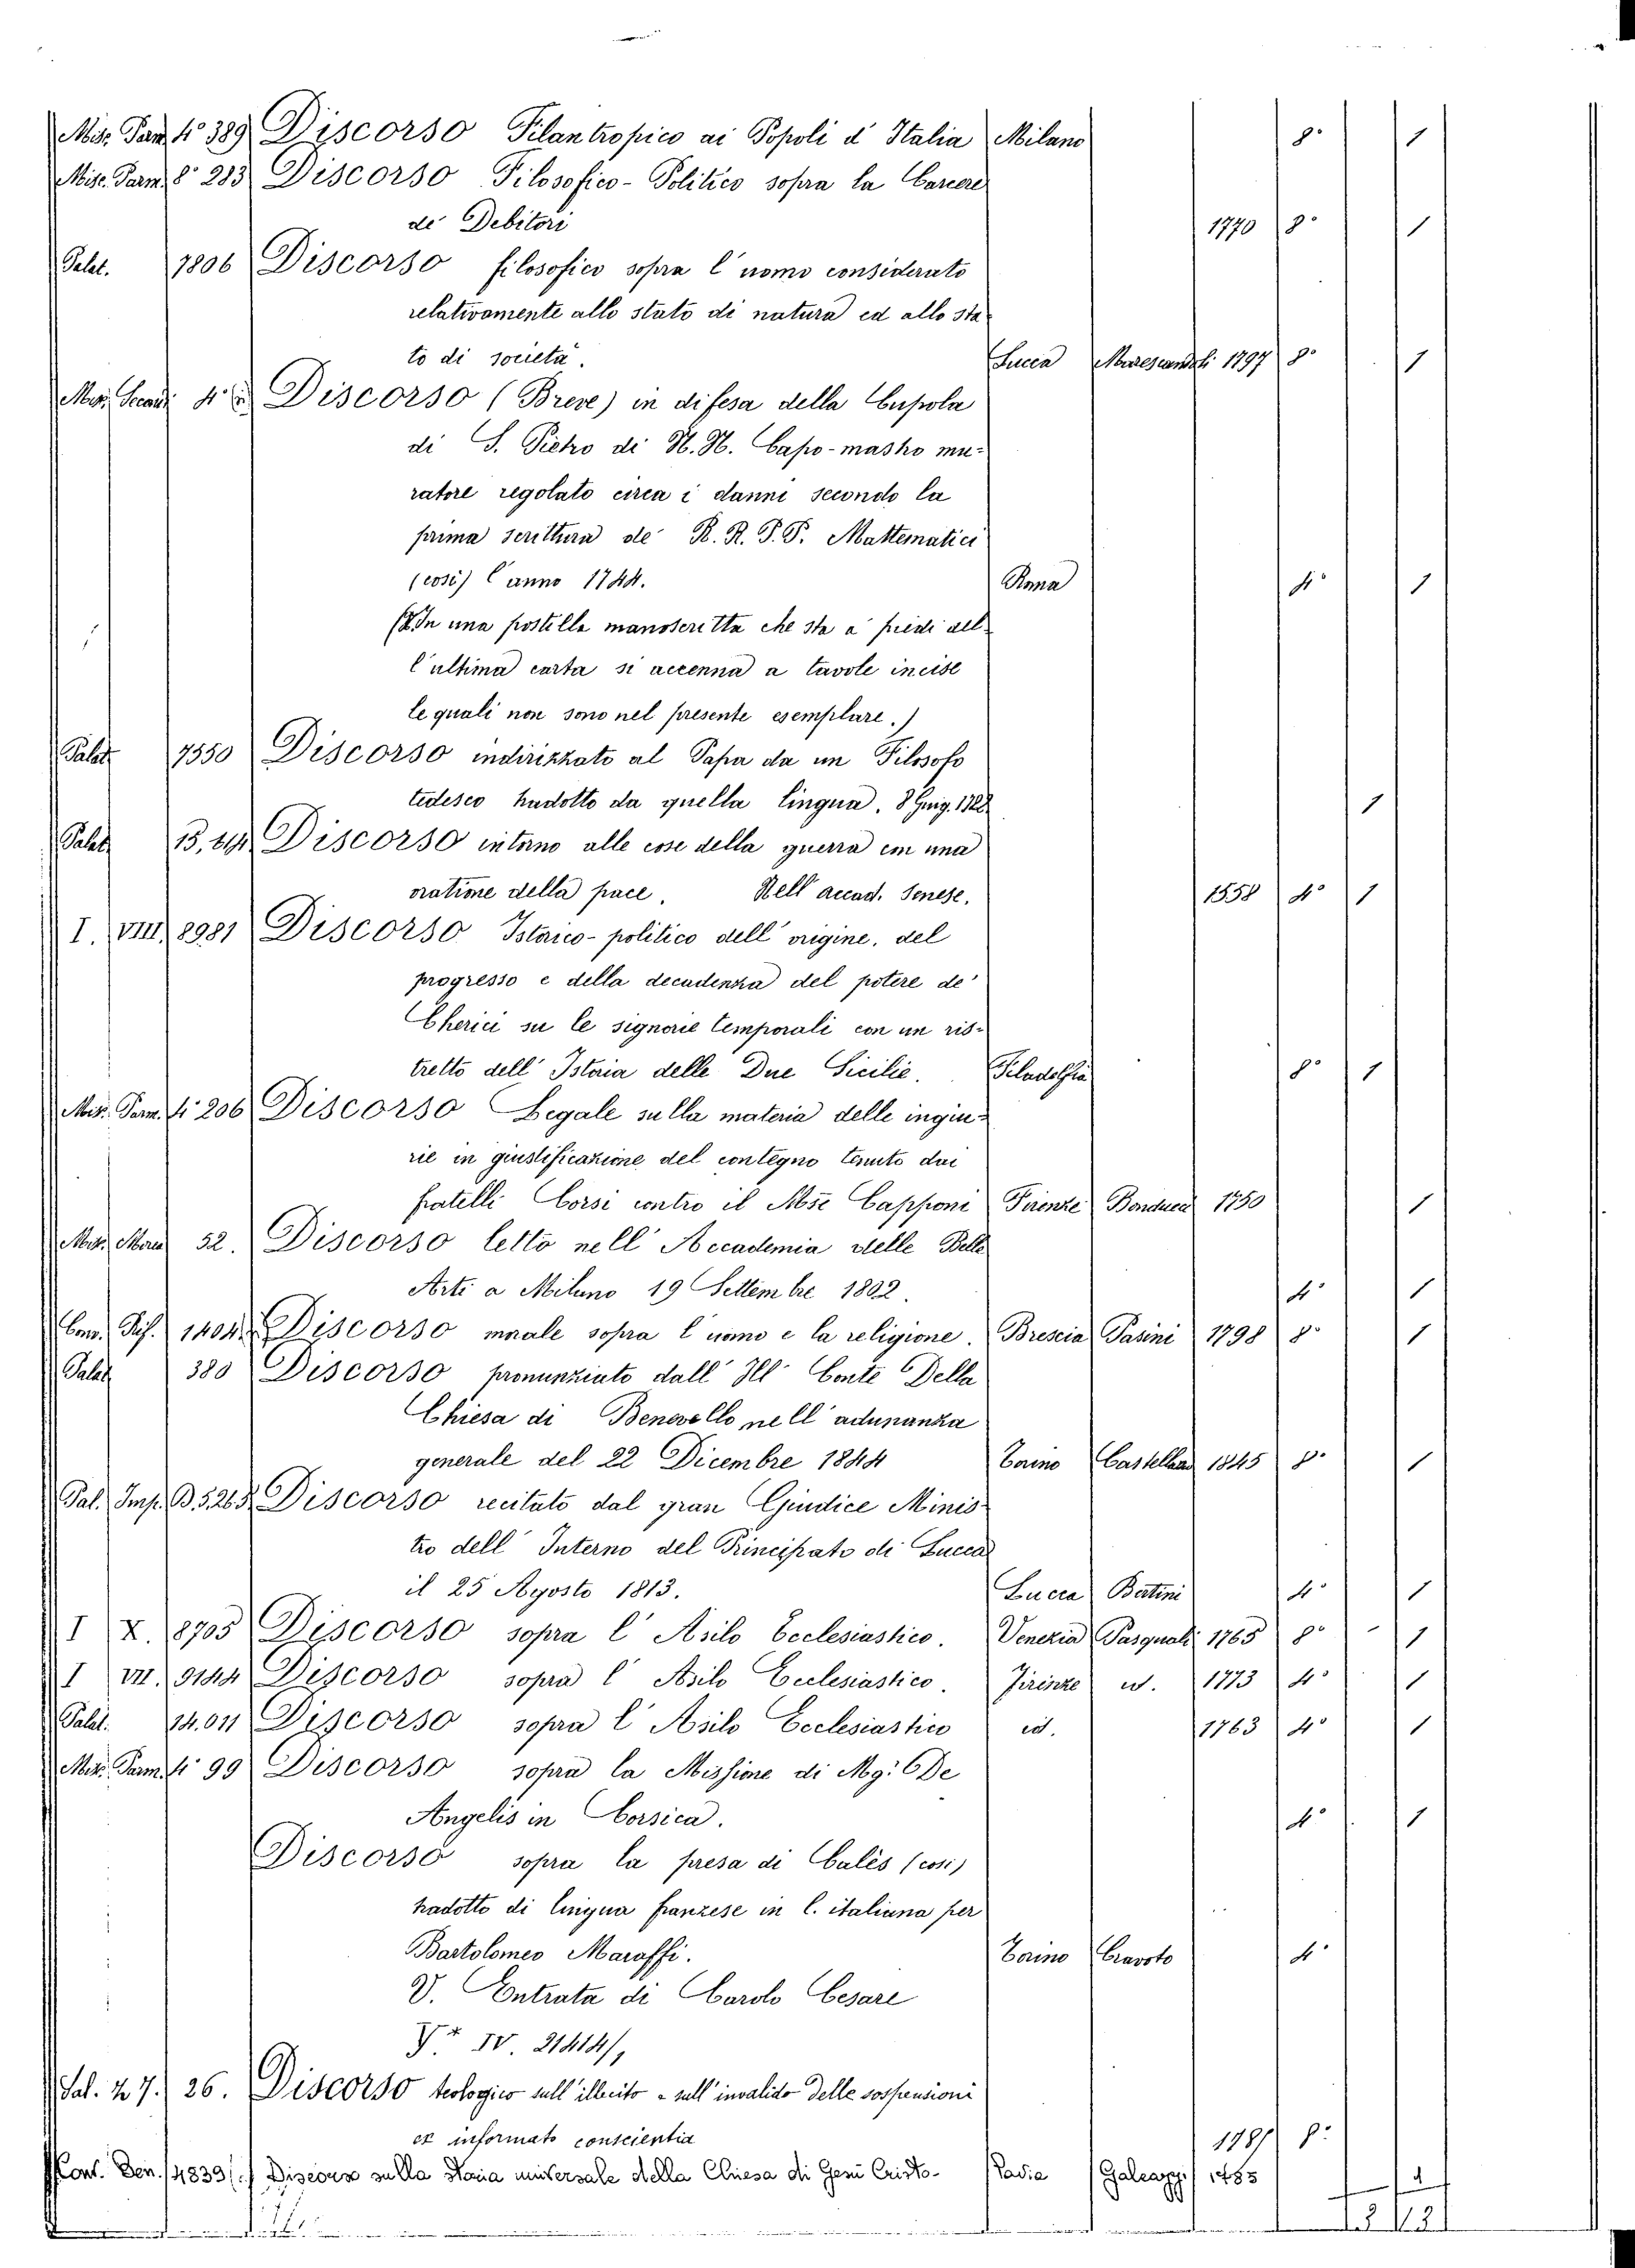 Misc. Parm. 4° 389 Discorso Filantropico ai Popoli d' Italia Milano 8° 1
Misc. Parm. 8° 283 Discorso Filosofico-Politico sopra la Carcere
de' Debitori 1770 8° 1
Palat. 7806 Discorso filosofico sopra l' uomo considerato
relativamente allo stato di natura ed allo sta
to di società. Lucca Marescandoli 1797 8° 1
Discorso (Breve) in difesa della Cupola
di S. Pietro di N. N. Capo-mastro mu-
ratore regolato circa i danni secondo la
prima scrittura de' R. R. P. P. Mattematici
(così) l' anno 1744. Roma 4° 1
In una postilla manoscritta che sta a' piedi del-
l' ultima carta si accenna a tavole incise
le quali non sono nel presente esemplare.)
Palat. 7550 Discorso indirizzato al Papa da un Filosofo
tedesco tradotto da quella lingua. 8 Giug. 1
Palat. Discorso intorno alle cose della guerra con una
oratione della pace. Nell' accad. Senese. 1558 4° 1
I. VIII. 8981 Discorso Istorico-politico dell' origine, del
progresso e della decadenza del potere de'
Cherici su le signorie temporali con un ris-
tretto dell' Istoria delle Due Sicilie. Filadelfia 8° 1
Misc. Parm. 4° 206 Discorso Legale sulla materia delle ingiu-
rie in giustificazione del contegno tenuto dai
fratelli Corsi contro il Mse Capponi Firenze Bonducci 1750 1
52. Discorso letto nell' Accademia delle Belle
Arti a Milano 19 Settembre 1802. 4° 1
Conv. Sop. 1404 Discorso morale sopra l' uomo e la religione. Brescia Pasini 1798 8° 1
Palat. 380 Discorso pronunziato dall' Ill. Conte Della
Chiesa di Benevello nell' adunanza
generale del 22 Dicembre 1844 Torino Castellazzo 1845 8° 1
Pal. Imp. B. 5.265 Discorso recitato dal gran Giudice Minis-
tro dell' Interno del Principato di Lucca
il 25 Agosto 1813. Lucca Bertini 4° 1
I X. 8705 Discorso sopra l' Asilo Ecclesiastico. Venezia Pasquali 1765 8° 1
I VII. 9144 Discorso sopra l' Asilo Ecclesiastico. Firenze id. 1773 4° 1
Palat. 14.011 Discorso sopra l' Asilo Ecclesiastico id. 1763 4° 1
Misc. Parm. 4° 99 Discorso sopra la Missione di Mgr. De
Angelis in Corsica. 4° 1
Discorso sopra la presa di Calès (così)
tradotto di lingua franzese in l. italiana per
Bartolomeo Maraffi. Torino Cravoto 4°
V. Entrata di Carolo Cesare
V° IV. 21414/,
Sal. 4 7. 26. Discorso teologico sull' illecito e sull' invalido delle sospensioni
ex informata conscientia 178 8°
Cont. Gen. 14839 Discorso sulla Storia universale della Chiesa di Gesù Cristo- Pavia Galeazzi 1785 1